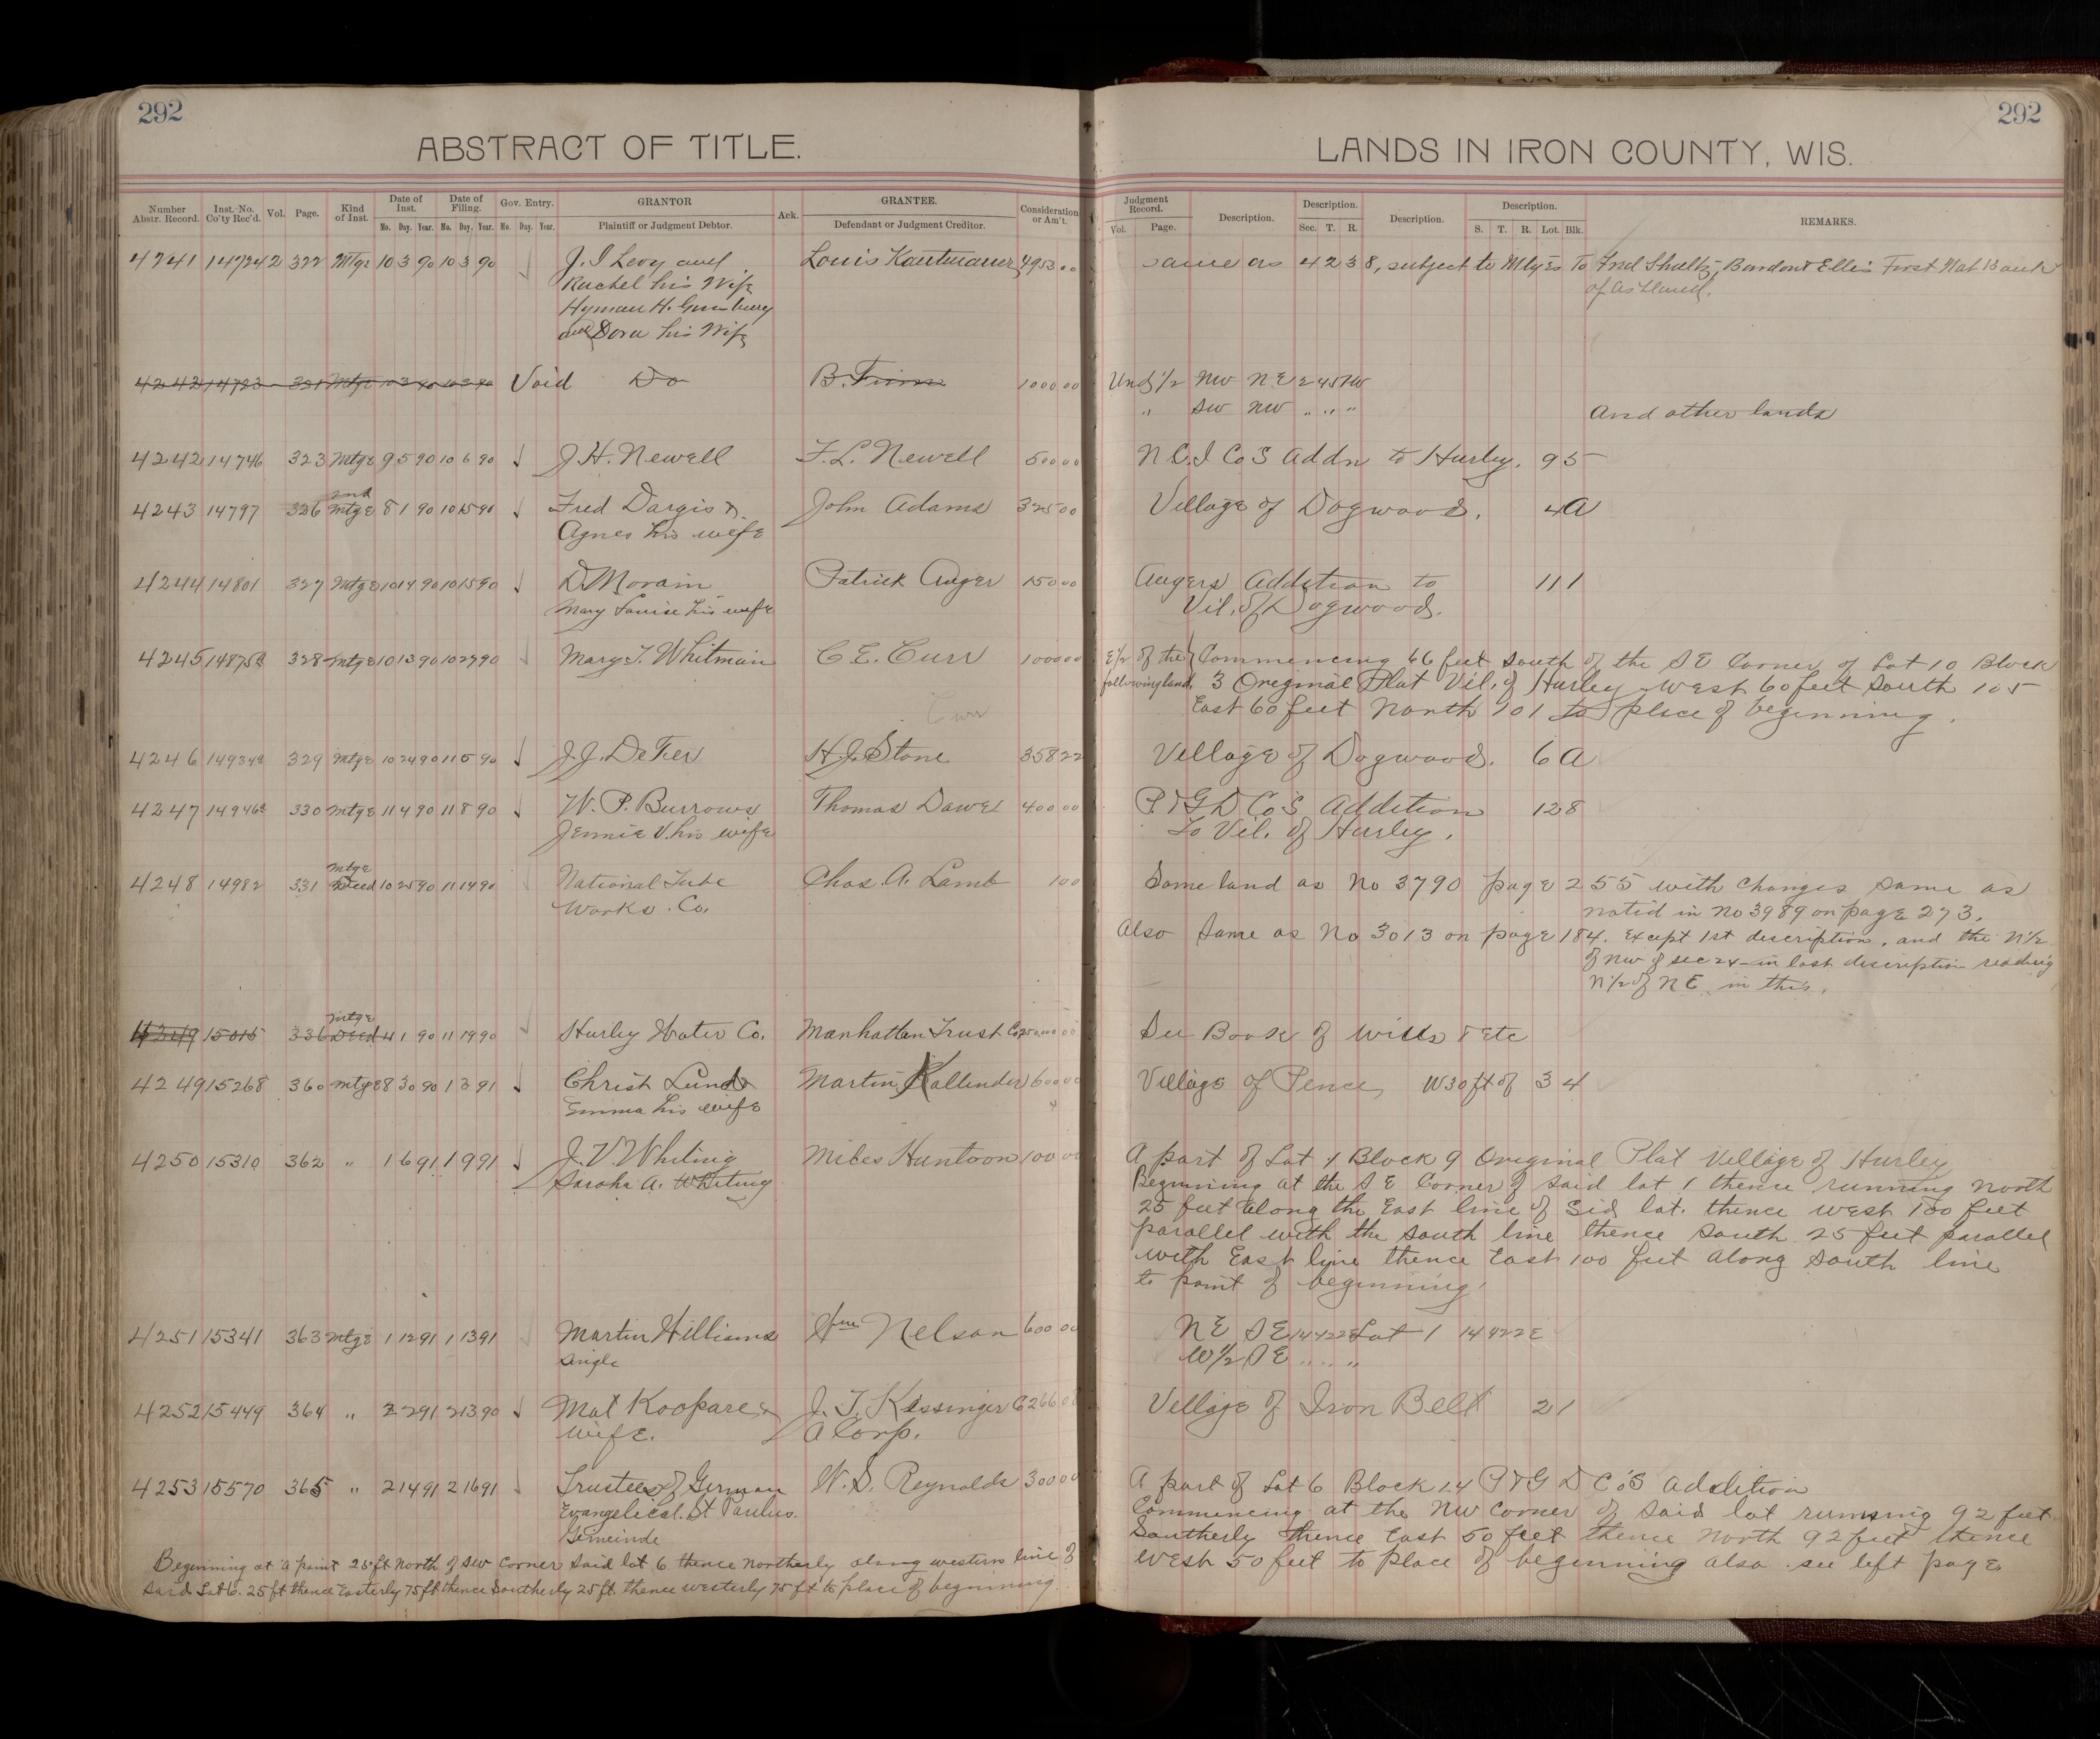 292
ABSTRACT OF TITLE.
Number Abstr. Record. Inst. No. Co'ty Rec'd. Vol. Page. Kind of Inst. Date of Inst. Mo. Day. Year. Date of Filing. Mo. Day. Year. Gov. Entry. Mo. Day. Year. GRANTOR Plaintiff or Judgment Debtor. Ack. GRANTEE. Defendant or Judgment Creditor. Consideration or Am't.
4241 14724 2 322 Mtge 10 3 90 10 3 90 J. I Levy and Louis 4953 00
Rachel his Wife
Hyman H.
and Dora his Wife
4242 14723 321 Mtge 10 3 90 10 3 90 Void Do B. 1000 00
4242 14746 323 Mtge 9 5 90 10 6 90 J. H. Newell F. L. Newell 500 00
2nd
4243 14797 326 Mtge 8 1 90 10 15 90 Fred Dargis & John Adams 325 00
Agnes his wife
4244 14801 327 Mtge 10 14 90 10 15 90 D. Morain Patrick Auger 150 00
Mary Louise his wife
4245 14875 328 Mtge 10 13 90 10 27 90 Mary T. Whitman C. E. Curr 1000 00
Curr
4246 14934 329 Mtge 10 24 90 11 5 90 J. J. DeFer H. J. Stone 358 22
4247 14946 330 Mtge 11 4 90 11 8 90 W. P. Burrows Thomas Dawel 400 00
Jennie V. his wife
Mtge
4248 14982 331 Deed 10 25 90 11 14 90 National Tube Chas. A. Lamb 1 00
Works. Co.
Mtge
4249 15015 336 Deed 4 1 90 11 19 90 Hurley Water Co. Manhattan Trust Co
4249 15268 360 Mtge 8 30 90 1 3 91 Christ Lund & Martin Kallender 600 00
Emma his wife
4250 15310 362 " 1 6 91 1 9 91 J. V. Whiting Miles Huntoon 100 00
Sarah A. Whiting
4251 15341 363 Mtge 1 12 91 1 13 91 Martin Williams Wm Nelson 600 00
single
4252 15449 364 " 2 2 91 2 13 90 Mat Koopare & J. T. Kissinger C 266 00
wife. A Corp.
4253 15570 365 " 2 14 91 2 16 91 Trustees of German W. S. Reynolds 300 00
Evangelical. St Paulus.
Gemeinde
Beginning at a point 25 ft North of SW corner said lot 6 thence Northerly along western line of
said Lot 6. 25 ft thence Easterly 75 ft thence Southerly 25 ft. thence westerly 75 ft to place of beginning
292
LANDS IN IRON COUNTY, WIS.
Judgment Record. Vol. Page. Description. Description. Sec. T. R. Description. Description. S. T. R. Lot. Blk. REMARKS.
same as 4238, subject to Mtges To Fred Shultz, Bardon & Ellis First Nat Bank
of Ashland.
Und 1/2 NW NE 2 45 1W
" SW NW " " "
And other lands
N. C. I Co S Addn to Hurley. 9 5
Village of Dogwood. 4 A
Augers Addition to 11 1
Vil. of Dogwood.
E 1/2 of the following land, Commencing 66 feet South of the SE Corner of Lot 10 Block
3 Oreginal Plat Vil. of Hurley West 60 feet South 105
East 60 feet North 101 to place of beginning.
Village of Dogwood. 6 A
P & G D Co's Addition 12 8
To Vil. of Hurley.
Same land as No 3790 page 255 with changes same as
noted in No 3989 on page 273.
Also Same as No 3013 on page 184. Except 1st description, and the N 1/2
of NW of sec 24 in last description reading
N 1/2 of NE in this.
See Book of Wills & Etc
Village of Pence, W 30 ft of 3 4
A part of Lot 1 Block 9 Original Plat Village of Hurley
Beginning at the SE Corner of said lot 1 thence running north
25 feet along the East line of Sid lot. thence west 100 feet
parallel with the south line thence south 25 feet parallel
with East line thence East 100 feet along south line
to point of beginning.
NE SE 14 42 2E Lot 1 14 42 2E
W 1/2 SE " " "
Village of Iron Belt 2 1
A part of Lot 6 Block 14 P & G D Co's Addition
Commencing at the NW corner of said lot running 92 feet
Southerly thence East 50 feet thence North 92 feet thence
West 50 feet to place of beginning also see left page